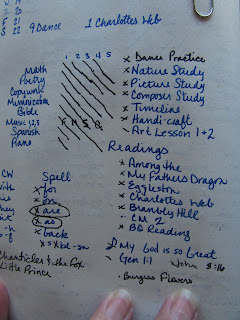 W 19
T 20
F 21
S 22 9 Dance
1 Charlottes Web
1 2 3 4 5
Math
Poetry
Copywork
Memorization
Bible
Music 123 F M S B
Spanish
Piano
x Dance Practice
x Nature Study
x Picture Study
x Composer Study
x Timeline
x Handi-craft
x Art Lesson 1+2
Readings
x Among the
x My Fathers Dragon
x Eggleston
x Charlottes Web
x Brambly Hill
x CN 2
x BB Reading
My God is so Great
Gen 1:1
John 5:16
Burgess Flowers
CW
with
his
they
it
Spell
x for
x on
x are
x as
x back
Chanticleer & the Fox
Little Prince